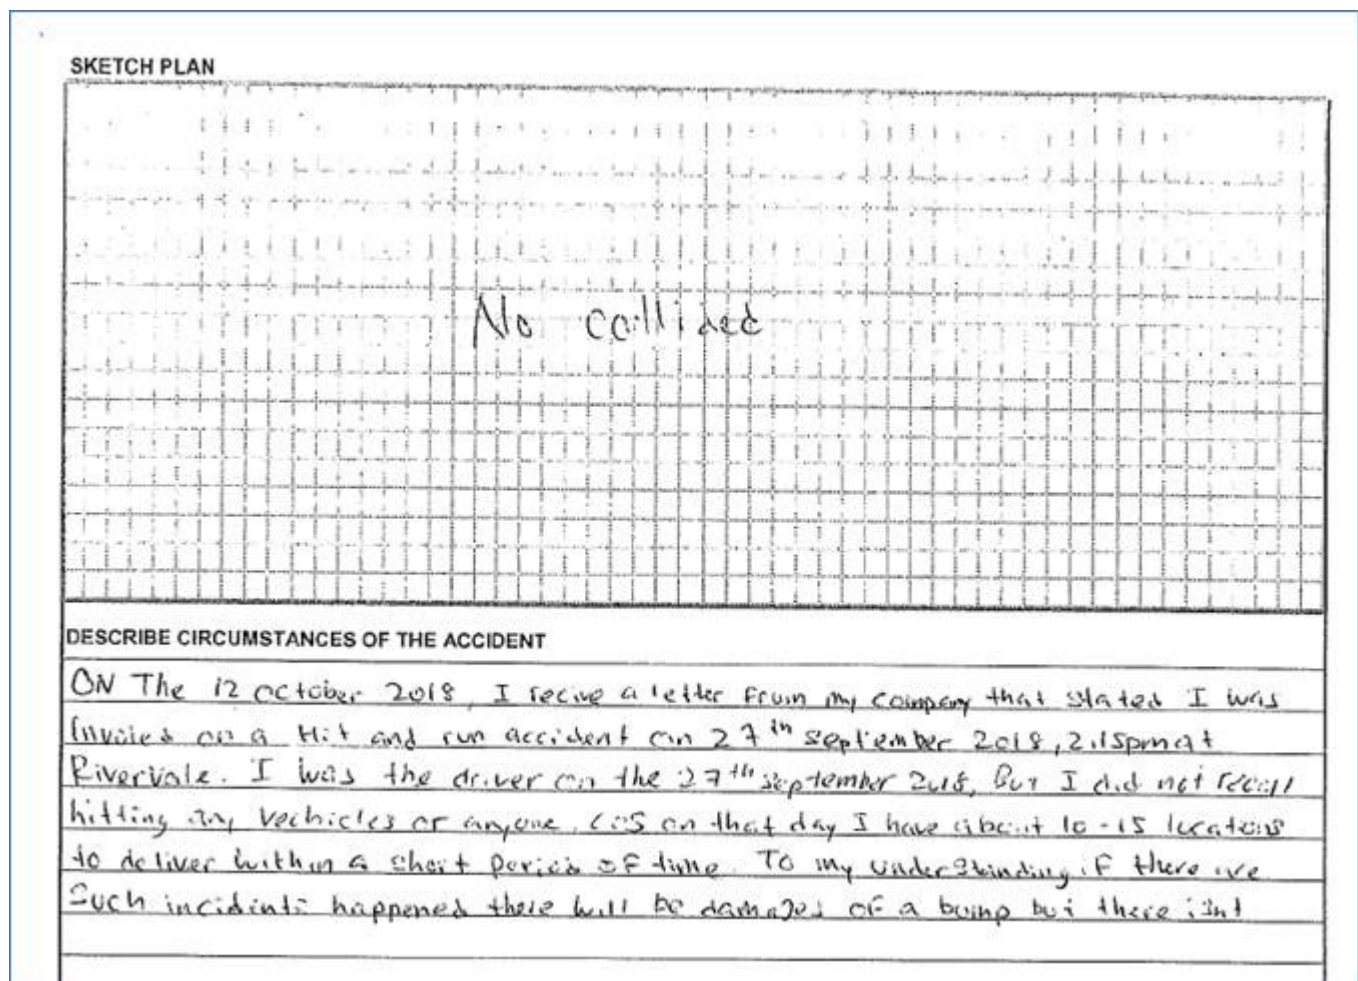 SKETCH PLAN
No collided
DESCRIBE CIRCUMSTANCES OF THE ACCIDENT
ON The 12 october 2018, I recive a letter from my company that stated I was
Involed on a Hit and run accident on 27th september 2018, 2.15pm at
Rivervale. I was the driver on the 27th september 2018, But I did not recall
hitting any vechicles or anyone. cos on that day I have about 10-15 locations
to deliver within a short period of time. To my understanding if there are
such incidents happened there will be damages of a bump but there isnt